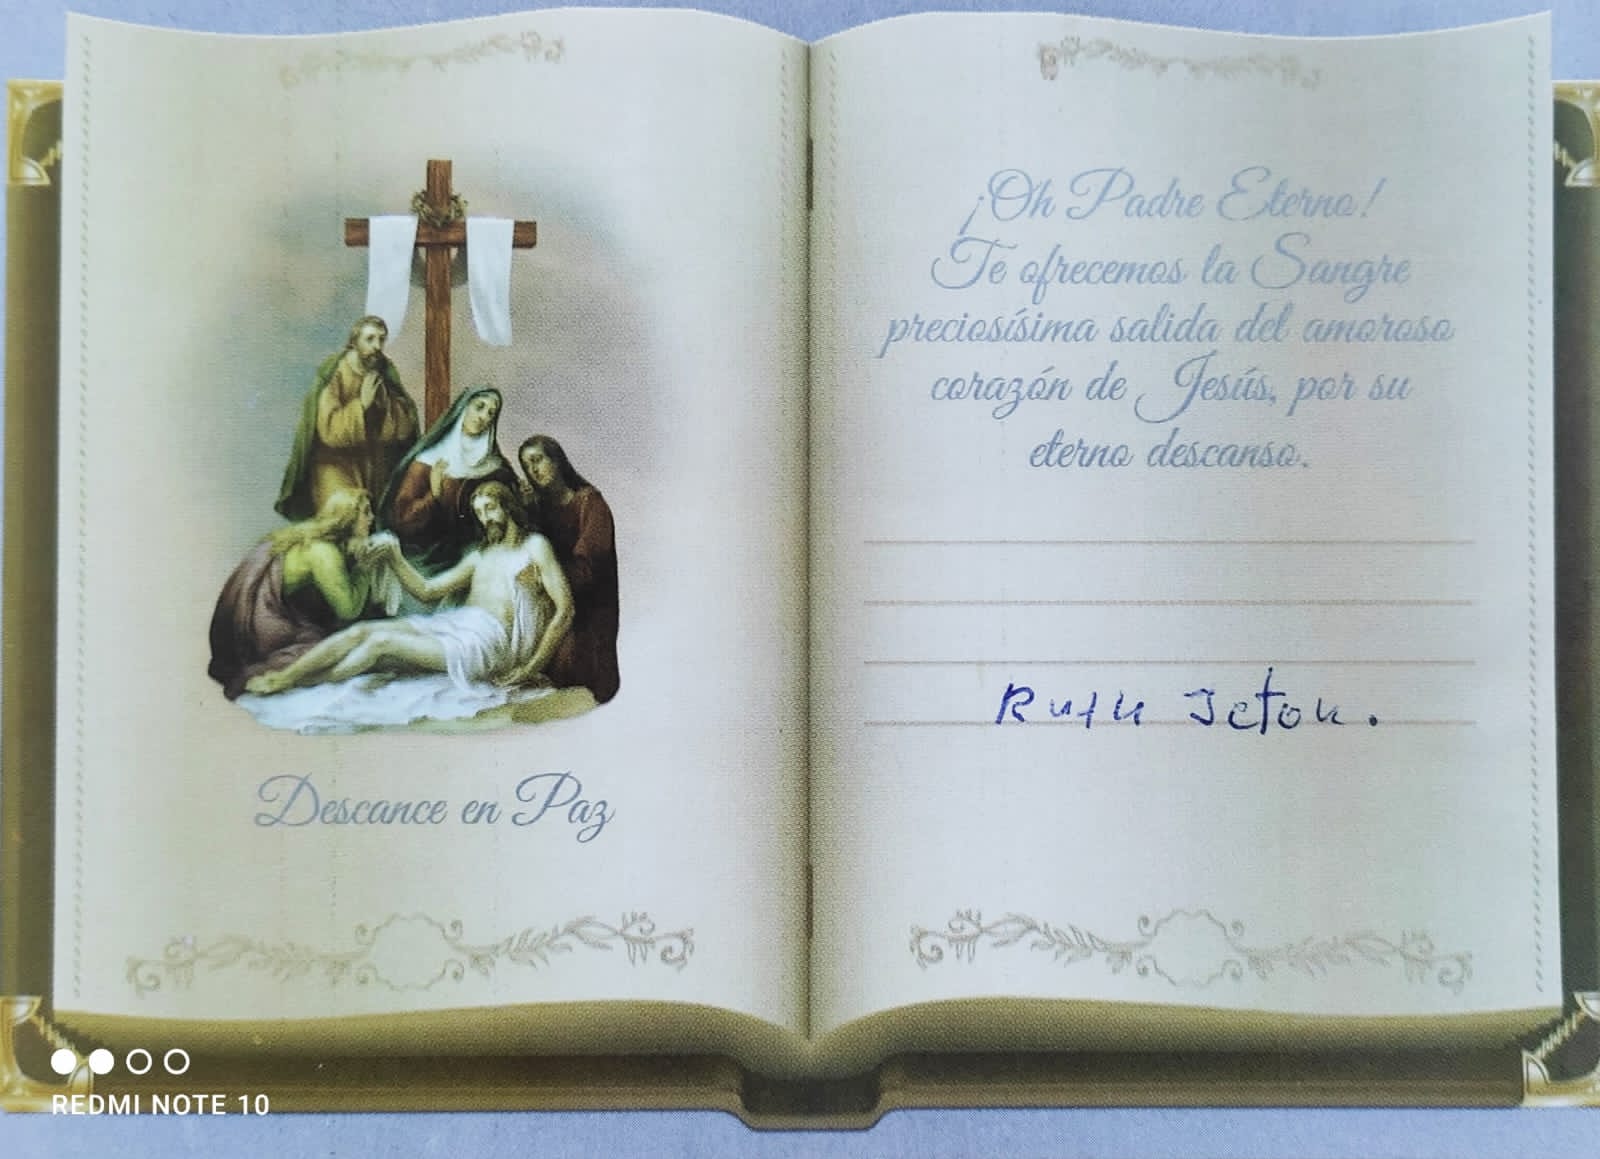 ¡Oh Padre Eterno!
Te ofrecemos la Sangre
preciosísima salida del amoroso
corazón de Jesús, por su
eterno descanso.
Ruth
Descance en Paz
REDMI NOTE 10